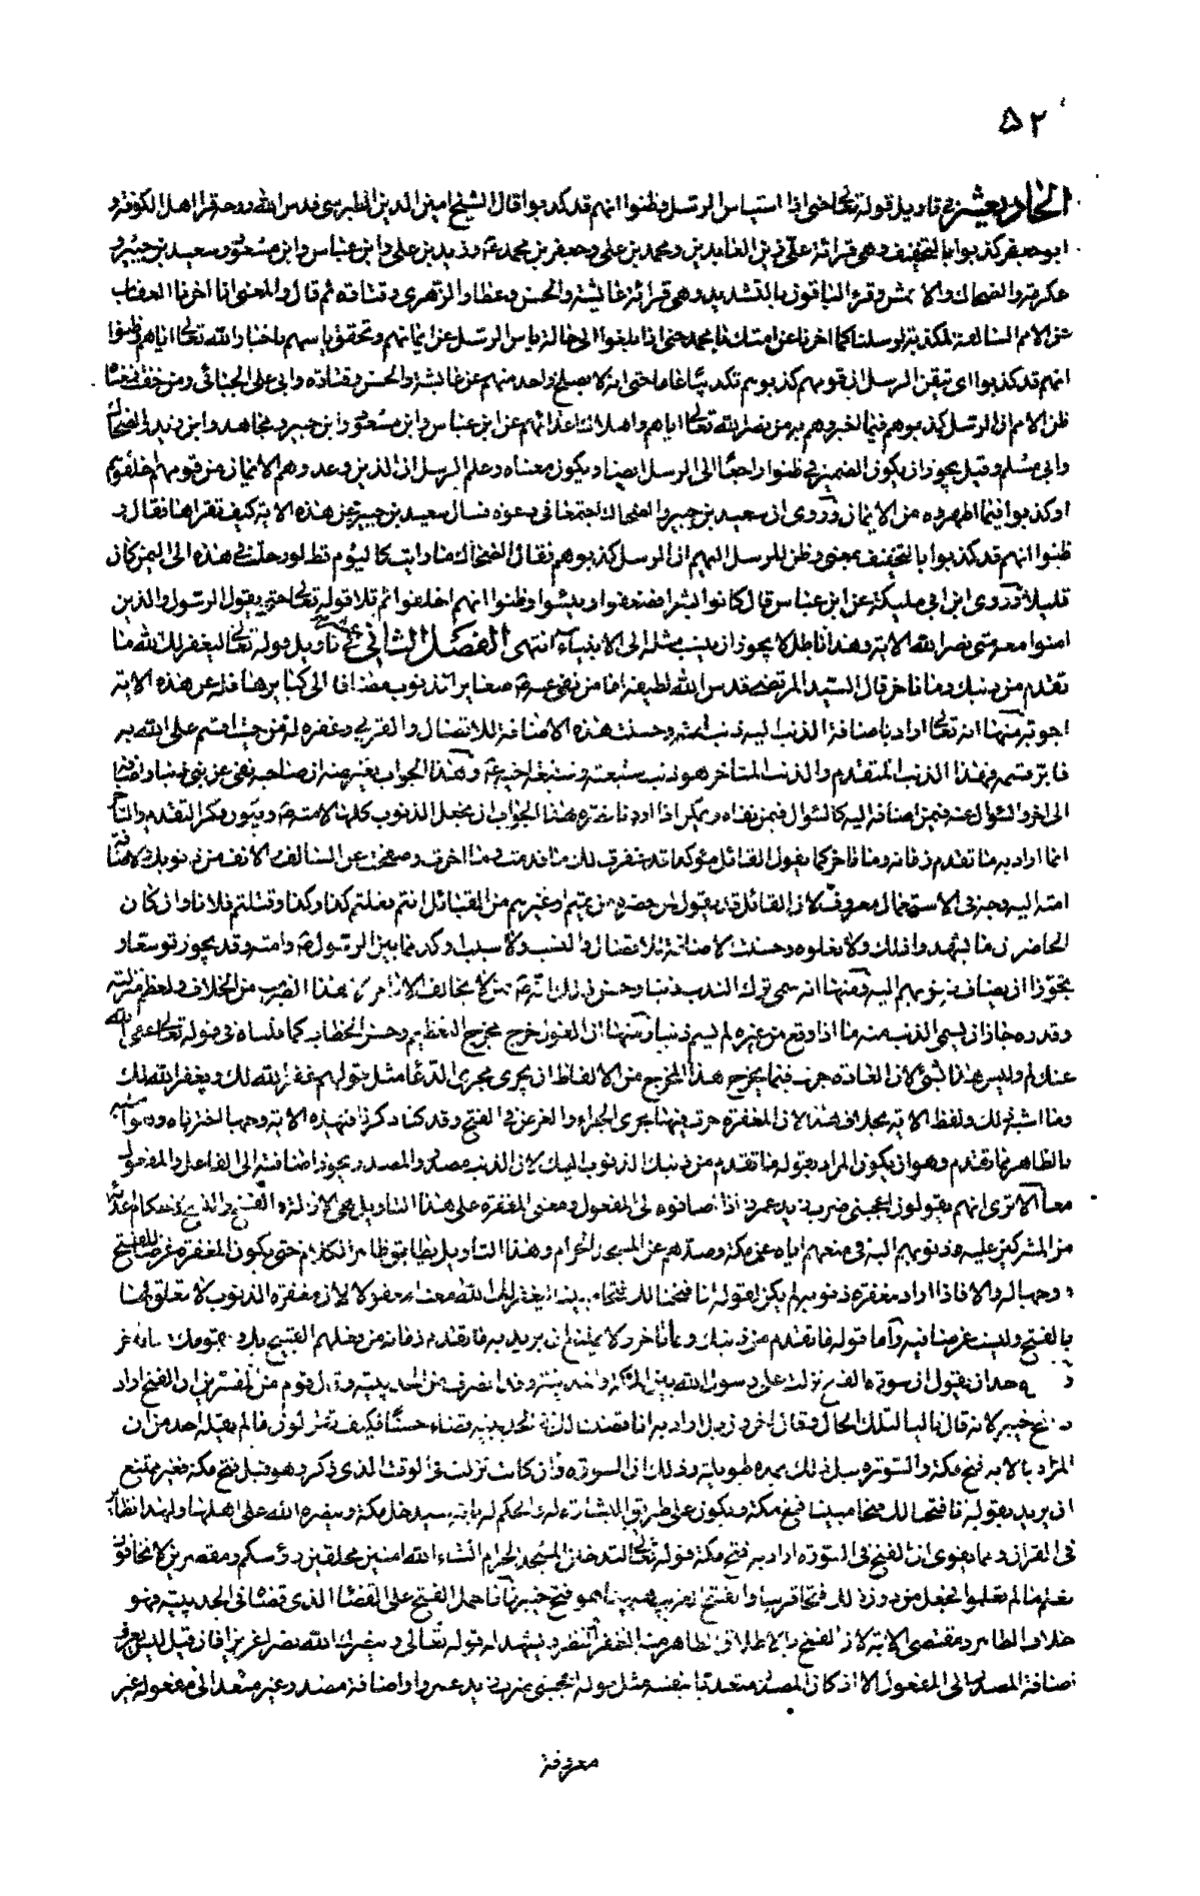 ۵۲
الحاديعشر في تاويل قوله تعالى حتى اذا استياس الرسل وظنوا انهم قد كذبوا قال الشيخ امين الدين الطبرسي قدس الله روحه قرا اهل الكوفة و
ابو جعفر كذبوا بالتخفيف وهي قرائة علي وزين العابدين ومحمد بن علي وجعفر بن محمد ع وزيد بن علي وابن عباس وابن مسعود وسعيد بن جبير و
عكرمة والضحاك والاعمش وقرء الباقون بالتشديد وهي قرائة عايشة والحسن وعطا والزهري وقتادة ثم قال والمعنى انا اخرنا العقاب
عن الامم السالفة المكذبة لرسلنا كما اخرنا عن امتك يا محمد حتى اذا بلغوا الى حالة ياس الرسل عن ايمانهم وتحقق ياسهم باخبار الله تعالى اياهم وظنوا
انهم قد كذبوا اي تيقن الرسل ان قومهم كذبوهم تكذيبا عاما حتى انه لا يصلح واحد منهم عن عايشة والحسن وقتادة وابي علي الجبائي ومن خفف فمعناه
ظن الامم ان الرسل كذبوهم فيما اخبروهم به من نصر الله تعالى اياهم واهلاك اعدائهم عن ابن عباس وابن مسعود وابن جبير ومجاهد وابن زيد والضحاك
وابي مسلم وقيل يجوز ان يكون الضمير في ظنوا راجعا الى الرسل ايضا ويكون معناه وعلم الرسل ان الذين وعدوهم الايمان من قومهم اخلفوهم
او كذبوا فيما اظهروه من الايمان وروى ان سعيد بن جبير والضحاك اجتمعا في دعوة فسال سعيد بن جبير عن هذه الاية كيف تقراها فقال و
ظنوا انهم قد كذبوا بالتخفيف بمعنى وظن المرسل اليهم ان الرسل كذبوهم فقال الضحاك ما رايت كاليوم قط لو رحلت في هذه الى اليمن كان
قليلا وروى ابن ابي مليكة عن ابن عباس قال كانوا بشرا فضعفوا ويئسوا وظنوا انهم اخلفوا ثم تلا قوله تعالى حتى يقول الرسول والذين
امنوا معه متى نصر الله الاية وهذا باطل لا يجوز ان ينسب مثله الى الانبياء انتهى الفصل الثاني في تاويل قوله تعالى ليغفر لك الله ما
تقدم من ذنبك وما تاخر قال السيد المرتضى قدس الله لطيفه اما من نفى عنه ص صغاير الذنوب مضافا الى كبايرها فله عن هذه الاية
اجوبة منها انه تعالى اراد باضافة الذنب اليه ذنب امته وحسنت هذه الاضافة للاتصال والقربى وغفره له من حيث اقسم على الله به
فابر قسمه فهذا الذنب المتقدم والذنب المتاخر هو ذنب شيعته وشيعة اخيه ع وهذا الجواب يعترضه ان صاحبه نفى عن نبي ذنبا واضافه
الى اخر والسؤال عنه فيمن اضافه اليه كالسؤال فيمن نفاه ويمكن اذا اردنا نصرة هذا الجواب ان نجعل الذنوب كلها لامته ص ويكون ذكر التقدم والتاخر
انما اراد به ما تقدم زمانه وما تاخر كما يقول القائل مؤكدا قد غفرت لك ما قدمت وما اخرت وصفحت عن السالف والانف من ذنوبك ولاضافة
امته اليه وجه في الاستعمال معروف لان القائل قد يقول لمن حضره من بني تميم او غيرهم من القبائل انتم فعلتم كذا وكذا وقتلتم فلانا وان كان
الحاضرون ما شهدوا ذلك ولا فعلوه وحسنت الاضافة للاتصال والنسب ولا سبب اوكد مما بين الرسول ص وامته وقد يجوز توسعا و
تجوزا ان يضاف ذنوبهم اليه ومنها انه سمى ترك الندب ذنبا وحسن ذلك انه ص ممن لا يخالف الاوامر الا هذا الضرب من الخلاف ولعظم منزلته
وقدره جاز ان يسمى الذنب منه ما اذا وقع من غيره لم يسم ذنبا ومنها ان القول خرج مخرج التعظيم وحسن الخطاب كما قلناه في قوله تعالى عفى الله
عنك وليس هذا بشئ لان العادة جرت فيما يخرج هذا المخرج من الالفاظ ان يجرى مجرى الدعا مثل قولهم غفر الله لك ويغفر الله لك
وما اشبه ذلك ولفظ الاية بخلاف هذا لان المغفرة جرت فيها مجرى الجزاء والغرض في الفتح وقد كنا ذكرنا في هذه الاية وجها اخترناه وهو اشبه
بالظاهر مما تقدم وهو ان يكون المراد بقوله ما تقدم من ذنبك الذنوب اليك لان الذنب مصدر والمصدر يجوز اضافته الى الفاعل والمفعول
معا الا ترى انهم يقولون اعجبني ضرب زيد عمرو اذا اضافوه الى المفعول ومعنى المغفرة على هذا التاويل هي الازالة والفسخ والنسخ لاحكام اعدائه
من المشركين عليه وذنوبهم اليه في منعهم اياه عن مكة وصدهم عن المسجد الحرام وهذا التاويل يطابق ظاهر الكلام حتى يكون المغفرة غرضا للفتح
ووجها له والا فاذا اراد مغفرة ذنوبه لم يكن لقوله انا فتحنا لك فتحا مبينا ليغفر لك الله معنى معقول لان مغفرة الذنوب لا تعلق لها
بالفتح وليست غرضا فيه واما قوله ما تقدم من ذنبك وما تاخر فلا يمتنع ان يريد به ما تقدم زمانه من فعلهم القبيح بك وبقومك
احد ان يقول ان سورة الفتح نزلت على رسول الله بين مكة والمدينة وقد انصرف من الحديبية وقال قوم من المفسرين ان الفتح اراد
فتح خيبر لانه كان تاليا لتلك الحال وقال اخرون بل اراد به انا قضينا لك في الحديبية قضاء حسنا فكيف تقولون ما لم يقله احد من ان
المراد بالاية فتح مكة والسورة قبل ذلك بمدة طويلة وذلك ان السورة وان كانت نزلت في الوقت الذي ذكر وهو قبل فتح مكة فغير ممتنع
ان يريد بقوله انا فتحنا لك فتحا مبينا فتح مكة ويكون على طريق البشارة له والحكم له بانه سيدخل مكة وينصره الله على اهلها ولهذا نظائر
في القران ومما يقوى ان الفتح في السورة اراد به فتح مكة قوله تعالى لتدخلن المسجد الحرام انشاء الله امنين محلقين رؤسكم ومقصرين لا تخافون
فعلم ما لم تعلموا فجعل من دون ذلك فتحا قريبا والفتح القريب هيهنا هو فتح خيبر واما حمل الفتح على القضا الذي قضاه في الحديبية فهو
خلاف الظاهر ومقتضى الاية لان الفتح بالاطلاق الظاهر منه الظفر والنصر ويشهد له قوله تعالى وينصرك الله نصرا عزيزا فان قيل ليس يعرف
اضافة المصدر الى المفعول الا اذا كان المصدر متعديا بنفسه مثل قولهم اعجبني ضرب زيد عمرو او اضافة مصدر غير متعد الى مفعوله غير
معروفة